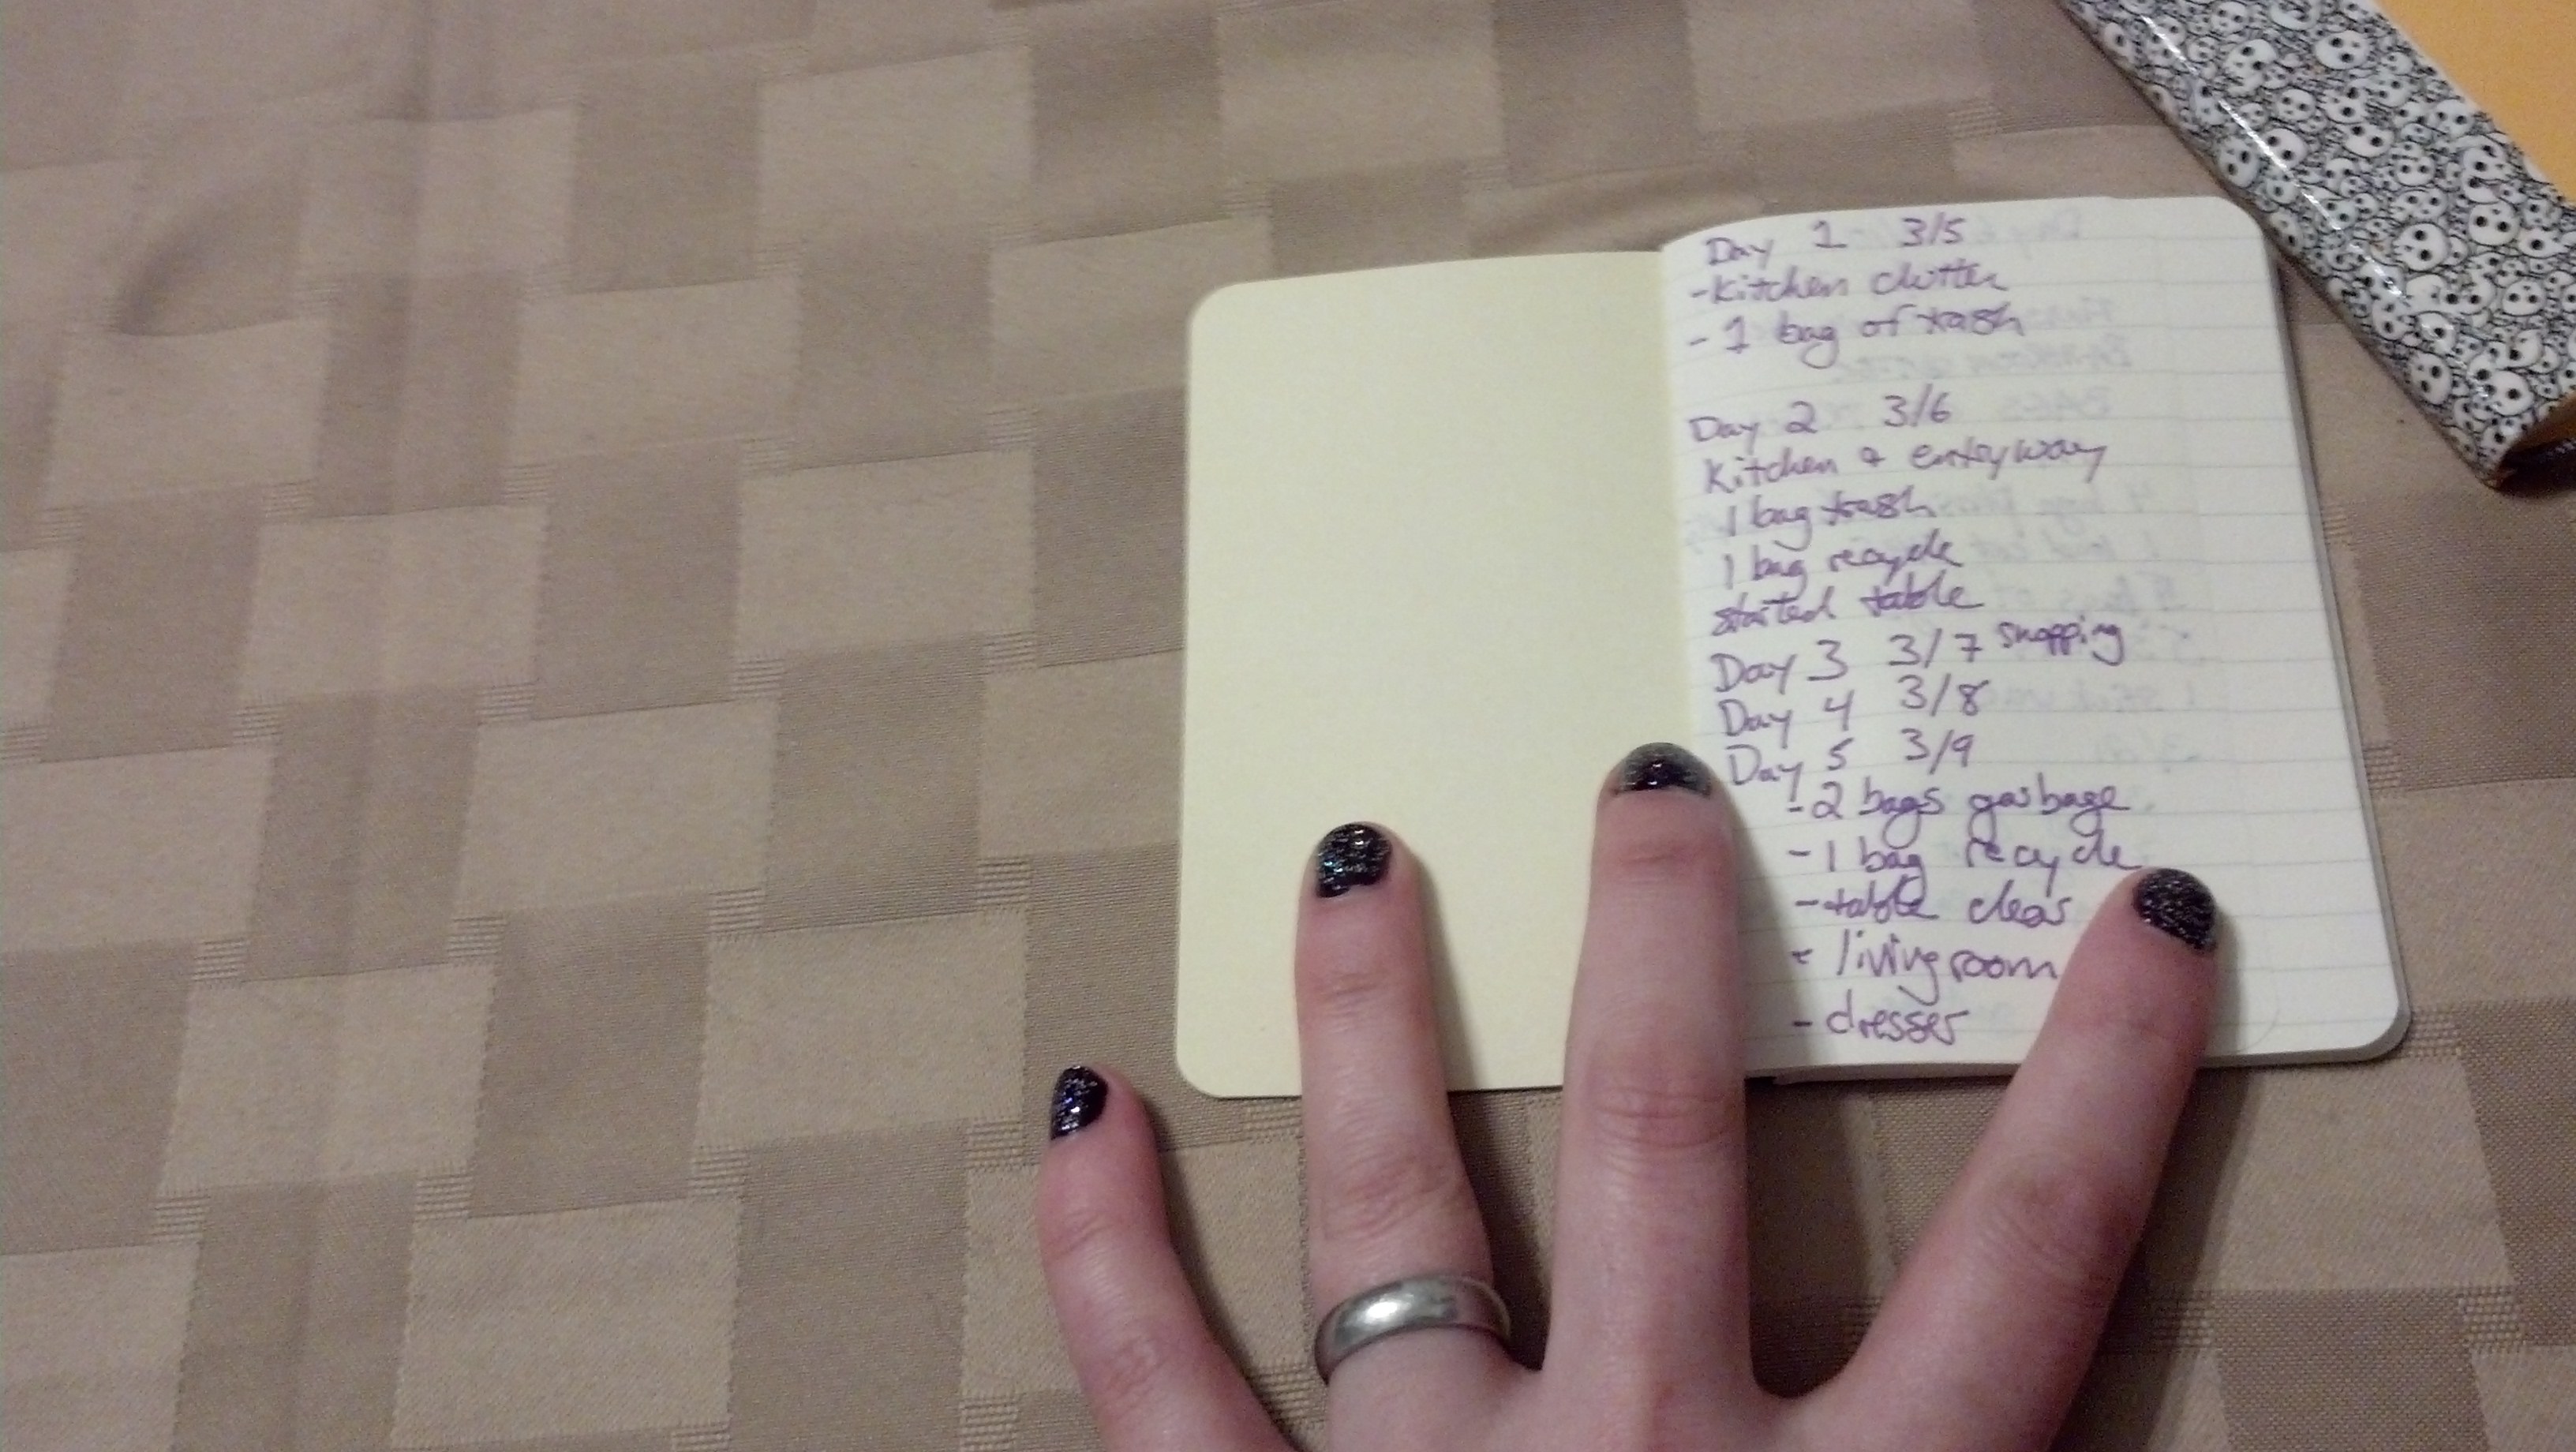 Day 1 3/5
-Kitchen clutter
- 1 bag of trash
Day 2 3/6
Kitchen + entryway
1 bag trash
1 bag recycle
started table
Day 3 3/7 shopping
Day 4 3/8
Day 5 3/9
-2 bags garbage
-1 bag recycle
-table clear
- livingroom
- dresser